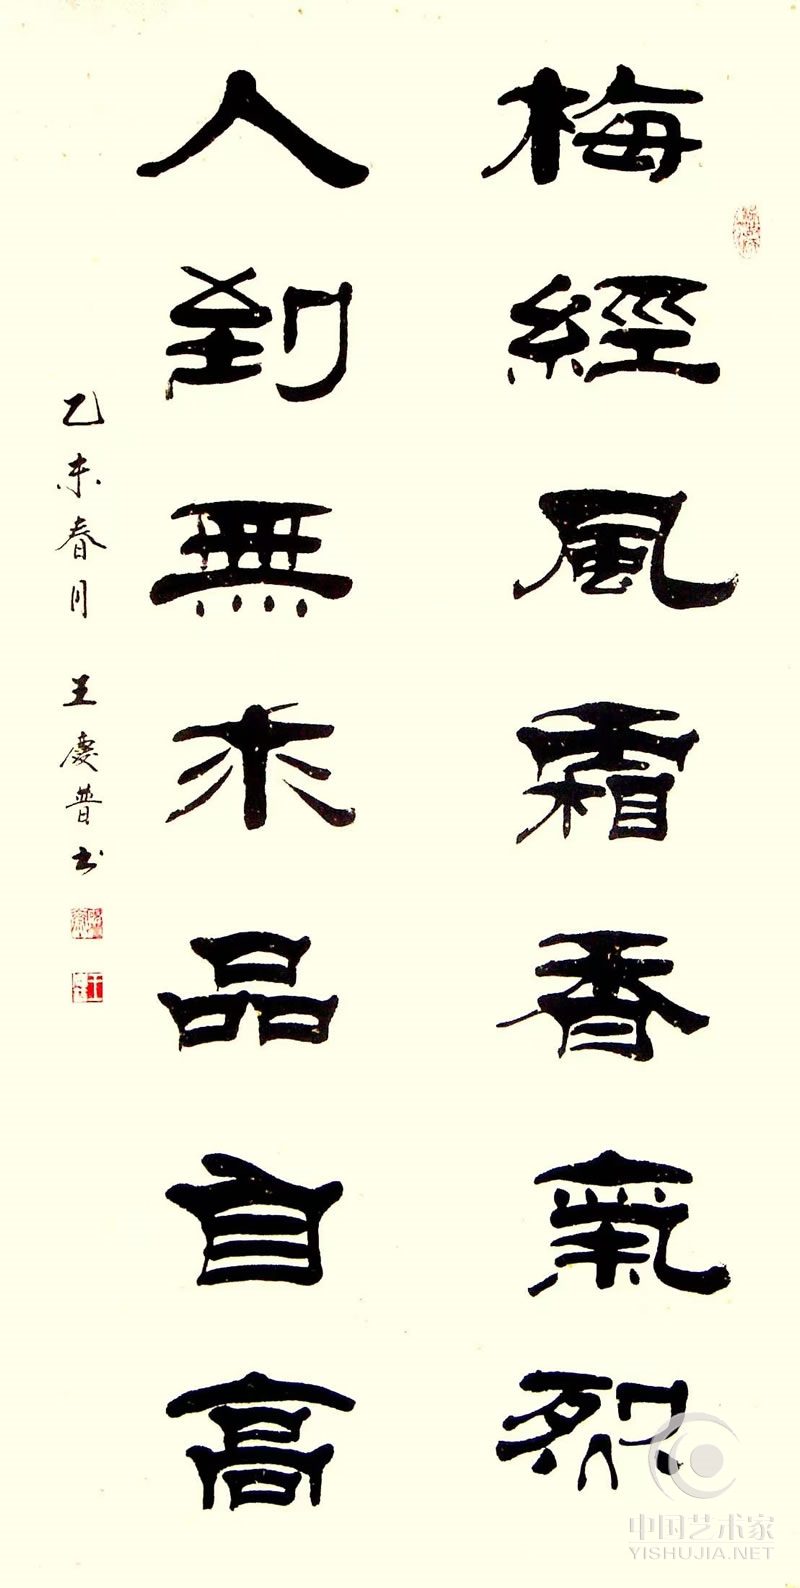 梅經風霜香氣烈
人到無求品自高
乙未春月 王慶普書
中国艺术家
YISHUJIA.NET